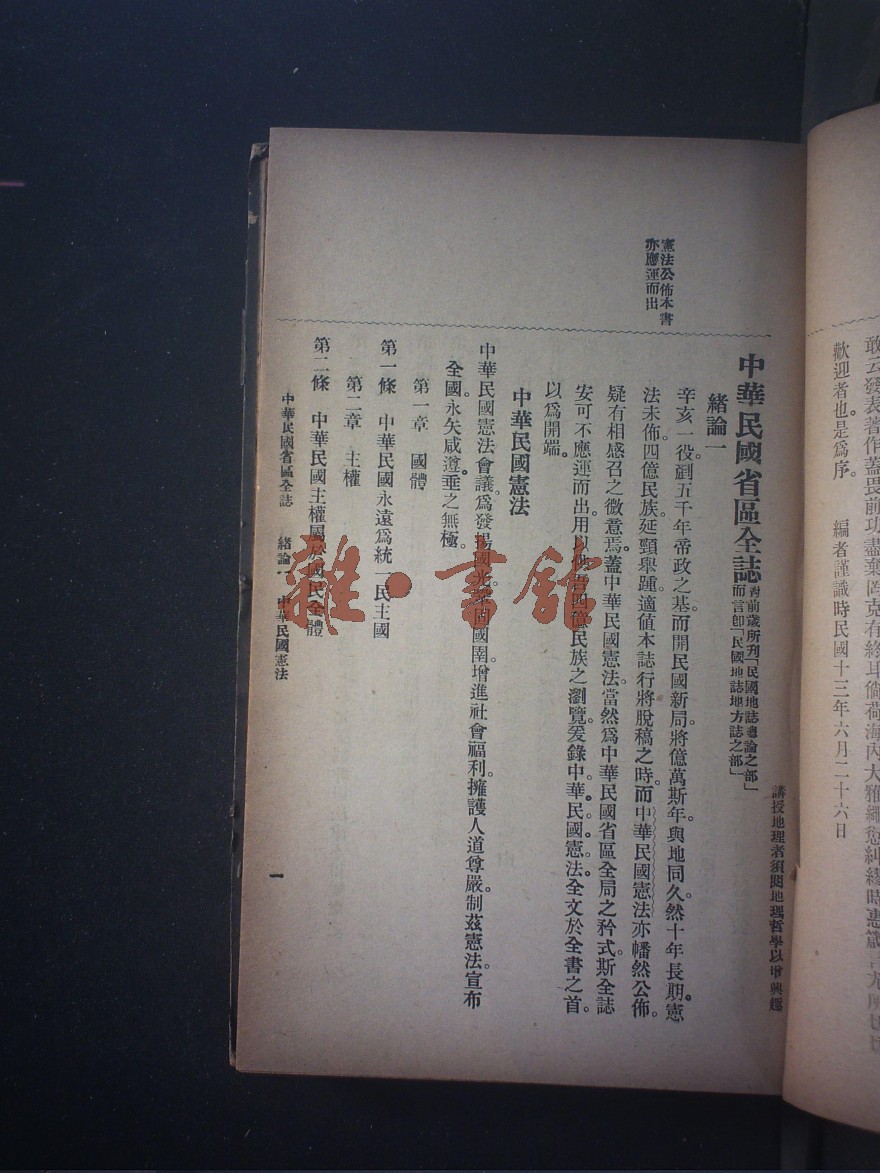 敢云發表著作蓋畏前功盡棄罔克有終耳倘荷海內大雅繩愆糾繆時惠箴言尤所
歡迎者也是爲序。 編者謹識時民國十三年六月二十六日
講授地理者須閱地理哲學以增興趣
憲法公佈本書
亦應運而出
中華民國省區全誌
對前歲所刊「民國地誌總論之部」
而言卽「民國地誌地方誌之部」
緖論一
辛亥一役剷五千年帝政之基。而開民國新局。將億萬斯年。與地同久。然十年長期。憲
法未佈。四億民族。延頸舉踵。適値本誌行將脫稿之時。而中華民國憲法亦幡然公佈。
疑有相感召之微意焉。蓋中華民國憲法。當然爲中華民國省區全局之矜式。斯全誌
安可不應運而出。用以 四億民族之瀏覽。爰錄中華民國憲法全文於全書之首。
以爲開端。
中華民國憲法
中華民國憲法會議。爲發揚國光。 固國圉。增進社會福利。擁護人道尊嚴。制茲憲法。宣布
全國。永矢咸遵。垂之無極。
第一章 國體
第一條 中華民國永遠爲統一民主國
第二章 主權
第二條 中華民國主權屬於國民全體
中華民國省區全誌 緖論一 中華民國憲法
一
雜·書館